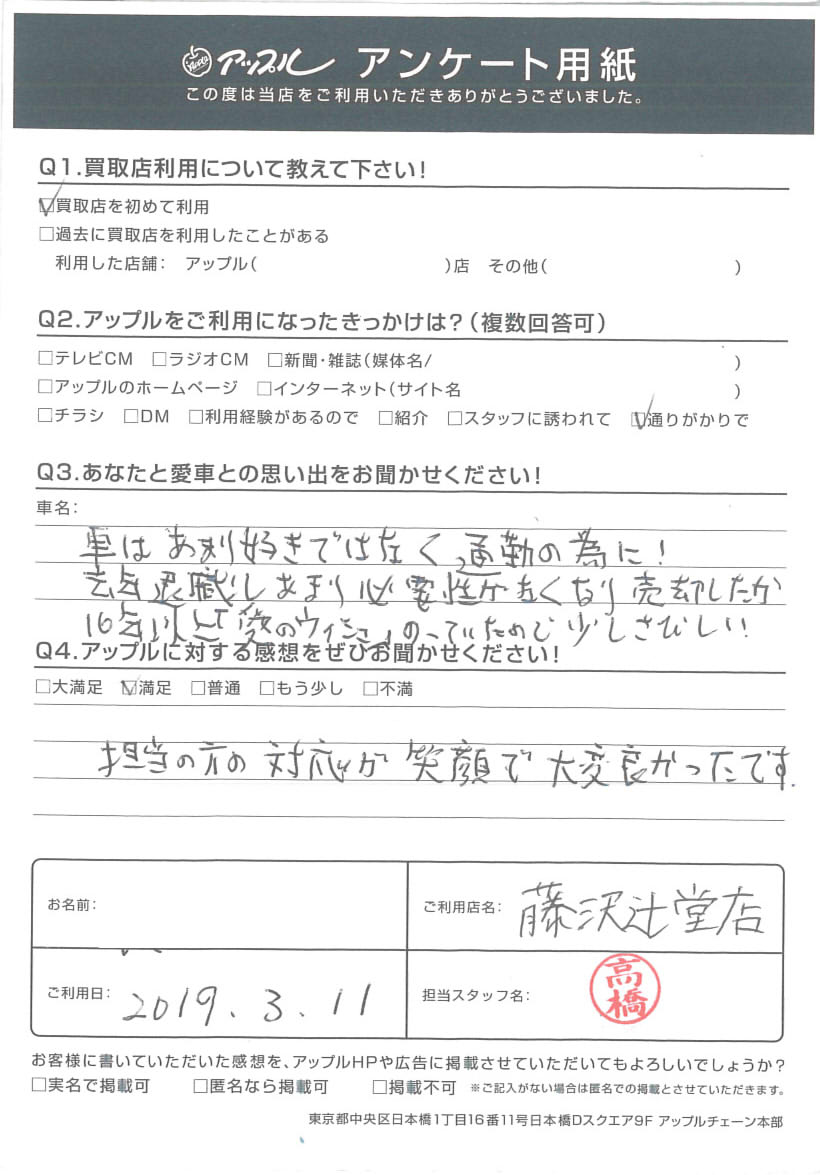 アップル アンケート用紙
この度は当店をご利用いただきありがとうございました。
Q1.買取店利用について教えて下さい!
☑買取店を初めて利用
□過去に買取店を利用したことがある
利用した店舗: アップル( )店 その他( )
Q2.アップルをご利用になったきっかけは?(複数回答可)
□テレビCM □ラジオCM □新聞・雑誌(媒体名/ )
□アップルのホームページ □インターネット(サイト名 )
□チラシ □DM □利用経験があるので □紹介 □スタッフに誘われて ☑通りがかりで
Q3.あなたと愛車との思い出をお聞かせください!
車名:
車はあまり好きではなく通勤の為に!
去年退職しあまり必要性がなくなり売却したが
16年以上「愛のウィンゴ」のっていたので少しさびしい!
Q4.アップルに対する感想をぜひお聞かせください!
□大満足 ☑満足 □普通 □もう少し □不満
担当の方の対応が笑顔で大変良かったです.
お名前:
ご利用店名: 藤沢辻堂店
ご利用日: 2019.3.11
担当スタッフ名: 高橋
お客様に書いていただいた感想を、アップルHPや広告に掲載させていただいてもよろしいでしょうか?
□実名で掲載可 □匿名なら掲載可 □掲載不可 ※ご記入がない場合は匿名での掲載とさせていただきます。
東京都中央区日本橋1丁目16番11号日本橋Dスクエア9F アップルチェーン本部